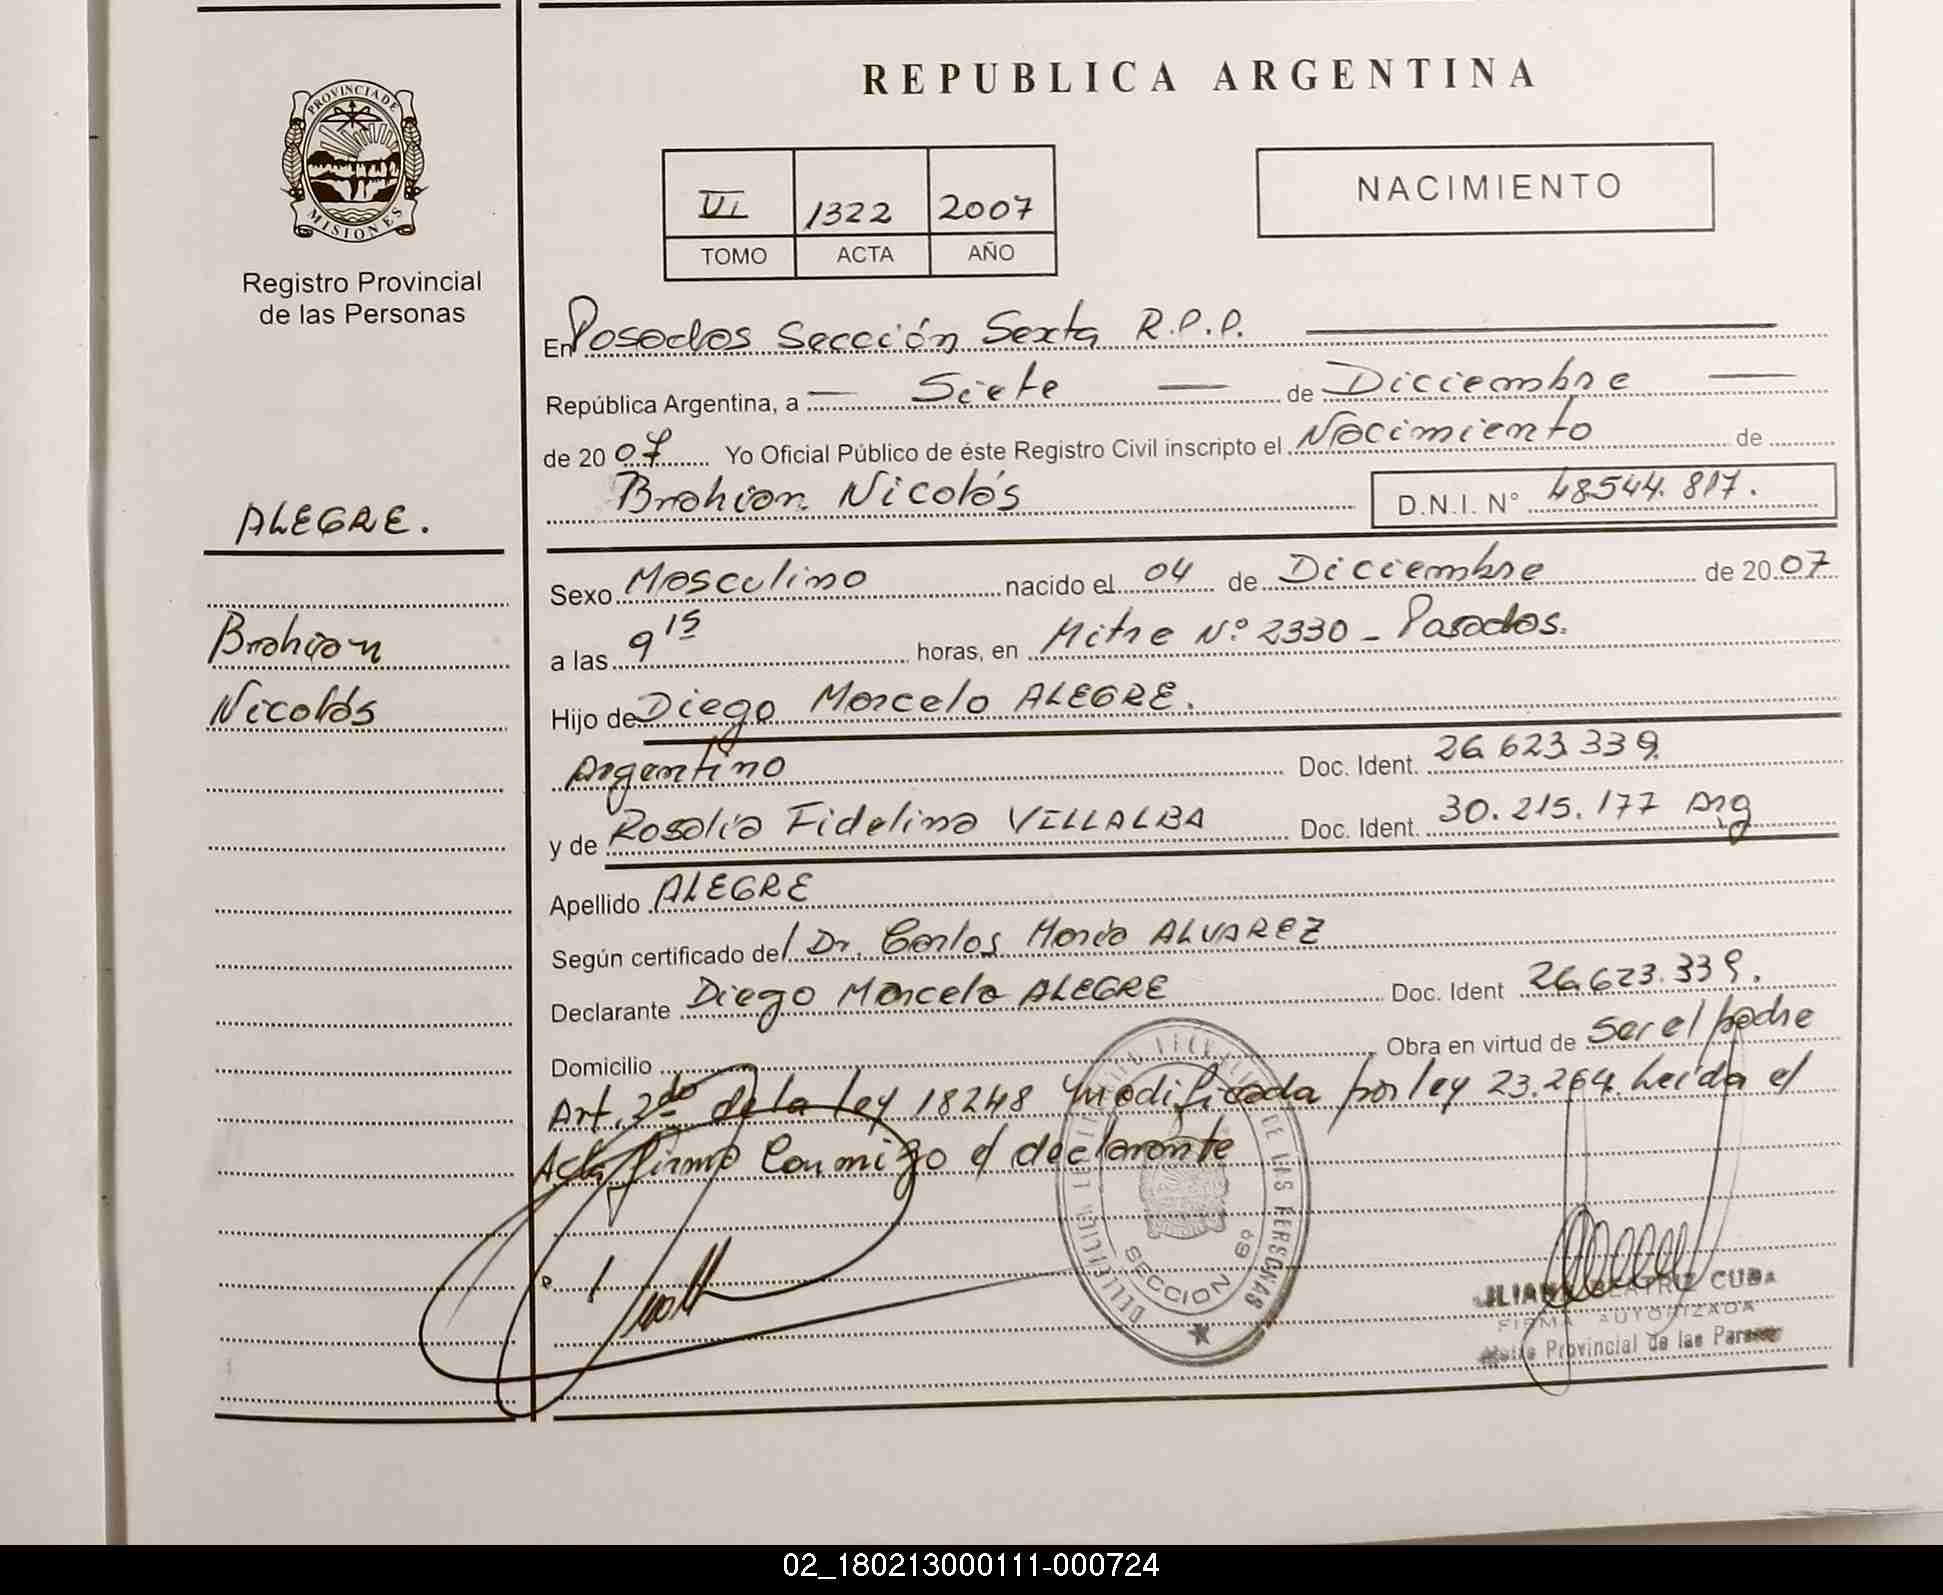 REPUBLICA ARGENTINA
PROVINCIA DE
MISIONES
Registro Provincial
de las Personas
VI 1322 2007
TOMO ACTA AÑO
NACIMIENTO
ALEGRE.
Brahian
Nicolás
En Posadas Sección Sexta R.P.P.
República Argentina, a Siete de Diciembre
de 2007 Yo Oficial Público de éste Registro Civil inscripto el Nacimiento de
Brahian Nicolás D.N.I. N° 48.544.817.
Sexo Masculino nacido el 04 de Diciembre de 2007
a las 9 15 horas, en Mitre N.º 2330 - Posadas.
Hijo de Diego Marcelo ALEGRE.
Argentino Doc. Ident. 26.623.339.
y de Rosalía Fidelina VILLALBA Doc. Ident. 30.215.177 Arg
Apellido ALEGRE
Según certificado del Dr. Carlos María ALVAREZ
Declarante Diego Marcelo ALEGRE Doc. Ident 26.623.339.
Domicilio Obra en virtud de ser el padre
Art. 2do de la ley 18248 modificada por ley 23.264. Leída el
Acta firma conmigo el declarante
DE LAS PERSONAS
SECCION 6º
BEATRIZ CUBA
FIRMA AUTORIZADA
Provincial de las
02_180213000111-000724